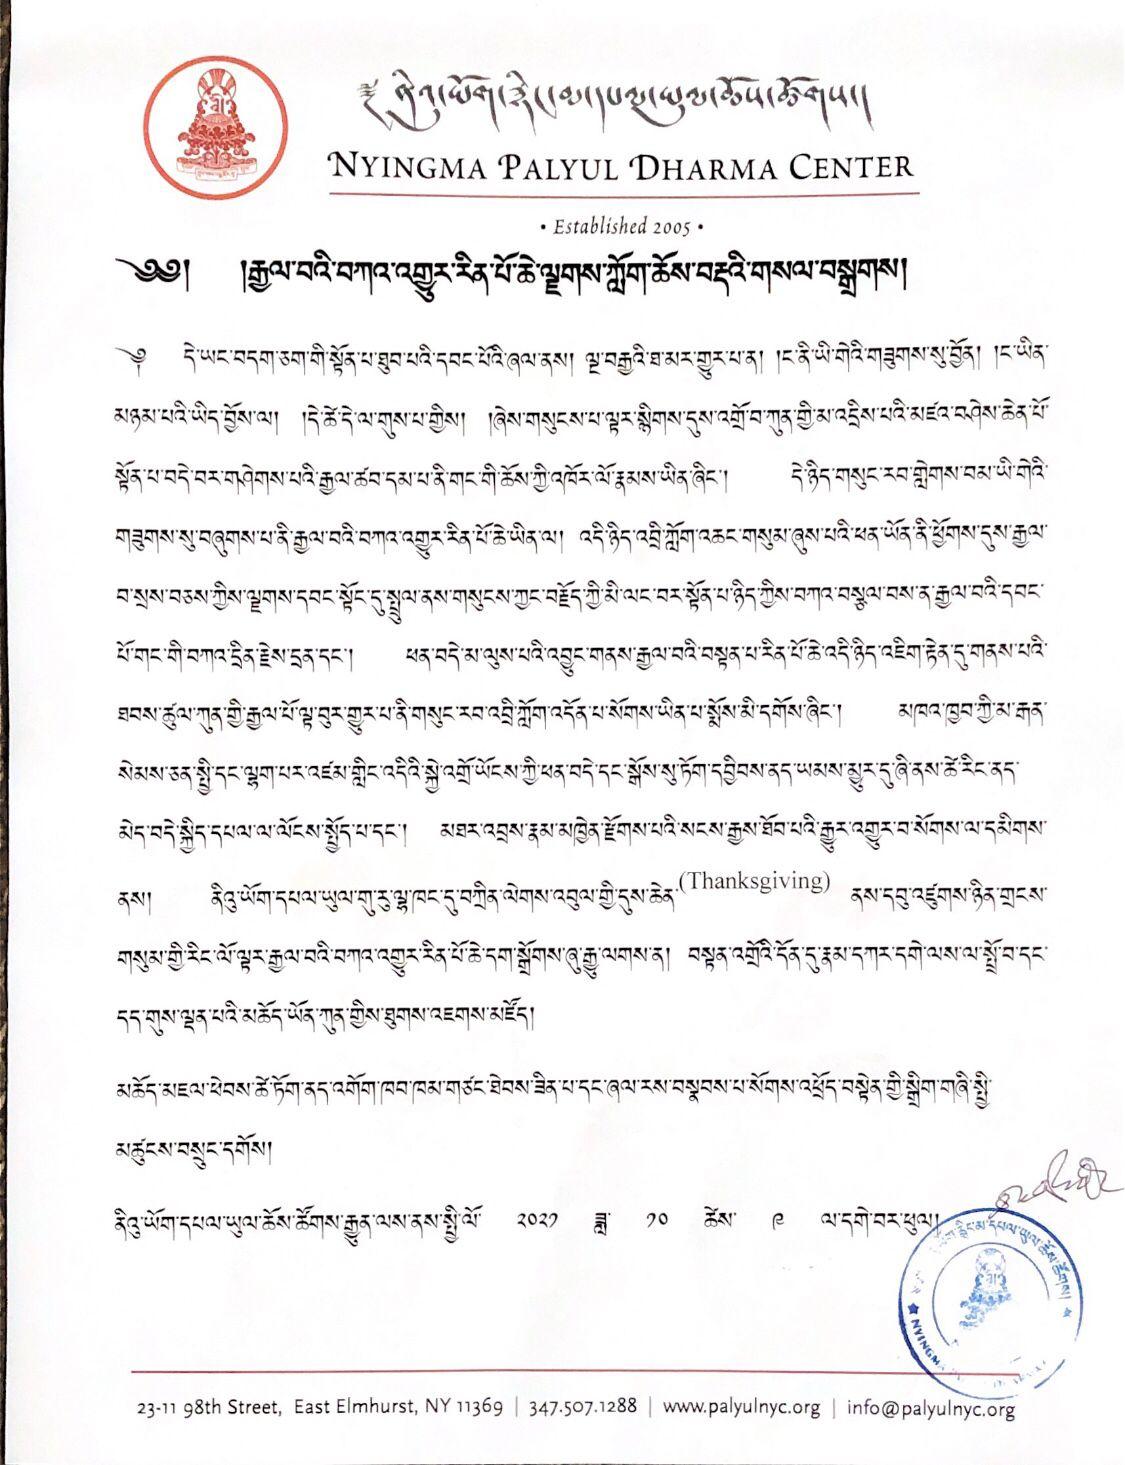 NYINGMA PALYUL DHARMA CENTER
• Established 2005 •
༄༅། །རྒྱལ་བའི་བཀའ་འགྱུར་རིན་པོ་ཆེ་ལྗགས་ཀློག་ཆོས་བརྡའི་གསལ་བསྒྲགས།
༄ དེ་ཡང་བདག་ཅག་གི་སྟོན་པ་ཐུབ་པའི་དབང་པོའི་ཞལ་ནས། ལྔ་བརྒྱའི་ཐ་མར་གྱུར་པ་ན། །ང་ནི་ཡི་གེའི་གཟུགས་སུ་བྱོན། །ང་ཡིན་
མཉམ་པའི་ཡིད་བྱོས་ལ། །དེ་ཚེ་དེ་ལ་གུས་པ་གྱིས། །ཞེས་གསུངས་པ་ལྟར་སྙིགས་དུས་འགྲོ་བ་ཀུན་གྱི་མ་འདྲིས་པའི་མཛའ་བཤེས་ཆེན་པོ་
སྟོན་པ་བདེ་བར་གཤེགས་པའི་རྒྱལ་ཚབ་དམ་པ་ནི་གང་གི་ཆོས་ཀྱི་འཁོར་ལོ་རྣམས་ཡིན་ཞིང་། དེ་ཉིད་གསུང་རབ་གླེགས་བམ་ཡི་གེའི་
གཟུགས་སུ་བཞུགས་པ་ནི་རྒྱལ་བའི་བཀའ་འགྱུར་རིན་པོ་ཆེ་ཡིན་ལ། འདི་ཉིད་འབྲི་ཀློག་འཆང་གསུམ་ཞུས་པའི་ཕན་ཡོན་ནི་ཕྱོགས་དུས་རྒྱལ་
བ་སྲས་བཅས་ཀྱིས་ལྗགས་དབང་སྟོང་དུ་སྤྲུལ་ནས་གསུངས་ཀྱང་བརྗོད་ཀྱི་མི་ལང་བར་སྟོན་པ་ཉིད་ཀྱིས་བཀའ་བསྩལ་བས་ན་རྒྱལ་བའི་དབང་
པོ་གང་གི་བཀའ་དྲིན་རྗེས་དྲན་དང་། ཕན་བདེ་མ་ལུས་པའི་འབྱུང་གནས་རྒྱལ་བའི་བསྟན་པ་རིན་པོ་ཆེ་འདི་ཉིད་འཇིག་རྟེན་དུ་གནས་པའི་
ཐབས་ཚུལ་ཀུན་གྱི་རྒྱལ་པོ་ལྟ་བུར་གྱུར་པ་ནི་གསུང་རབ་འབྲི་ཀློག་འདོན་པ་སོགས་ཡིན་པ་སྨོས་མི་དགོས་ཞིང་། མཁའ་ཁྱབ་ཀྱི་མ་རྒན་
སེམས་ཅན་སྤྱི་དང་ལྷག་པར་འཛམ་གླིང་འདིའི་སྐྱེ་འགྲོ་ཡོངས་ཀྱི་ཕན་བདེ་དང་སྒོས་སུ་ཏོག་དབྱིབས་ནད་ཡམས་མྱུར་དུ་ཞི་ནས་ཚེ་རིང་ནད་
མེད་བདེ་སྐྱིད་དཔལ་ལ་ལོངས་སྤྱོད་པ་དང་། མཐར་འབྲས་རྣམ་མཁྱེན་རྫོགས་པའི་སངས་རྒྱས་ཐོབ་པའི་རྒྱུར་འགྱུར་བ་སོགས་ལ་དམིགས་
ནས། ནིའུ་ཡོག་དཔལ་ཡུལ་གུ་རུ་ལྷ་ཁང་དུ་བཀྲིན་ལེགས་འབུལ་གྱི་དུས་ཆེན་(Thanksgiving) ནས་དབུ་འཛུགས་ཉིན་གྲངས་
གསུམ་གྱི་རིང་ལོ་ལྟར་རྒྱལ་བའི་བཀའ་འགྱུར་རིན་པོ་ཆེ་དག་སྒྲོགས་ཞུ་རྒྱུ་ལགས་ན། བསྟན་འགྲོའི་དོན་དུ་རྣམ་དཀར་དགེ་ལས་ལ་སྤྲོ་བ་དང་
དད་གུས་ལྡན་པའི་མཆོད་ཡོན་ཀུན་གྱིས་ཐུགས་འཇགས་མཛོད།
མཆོད་མཇལ་ཕེབས་ཚེ་ཏོག་ནད་འགོག་ཁབ་ཁམ་གཙང་ཐེབས་ཟིན་པ་དང་ཞལ་རས་བསྣབས་པ་སོགས་འཕྲོད་བསྟེན་གྱི་སྒྲིག་གཞི་སྤྱི་
མཚུངས་བསྲུང་དགོས།
ནིའུ་ཡོག་དཔལ་ཡུལ་ཆོས་ཚོགས་རྒྱུན་ལས་ནས་སྤྱི་ལོ་ ༢༠༢༡ ཟླ་ ༡༠ ཚེས་ ༩ ལ་དགེ་བར་ཕུལ།།
NYINGMA
23-11 98th Street, East Elmhurst, NY 11369 | 347.507.1288 | www.palyulnyc.org | info@palyulnyc.org